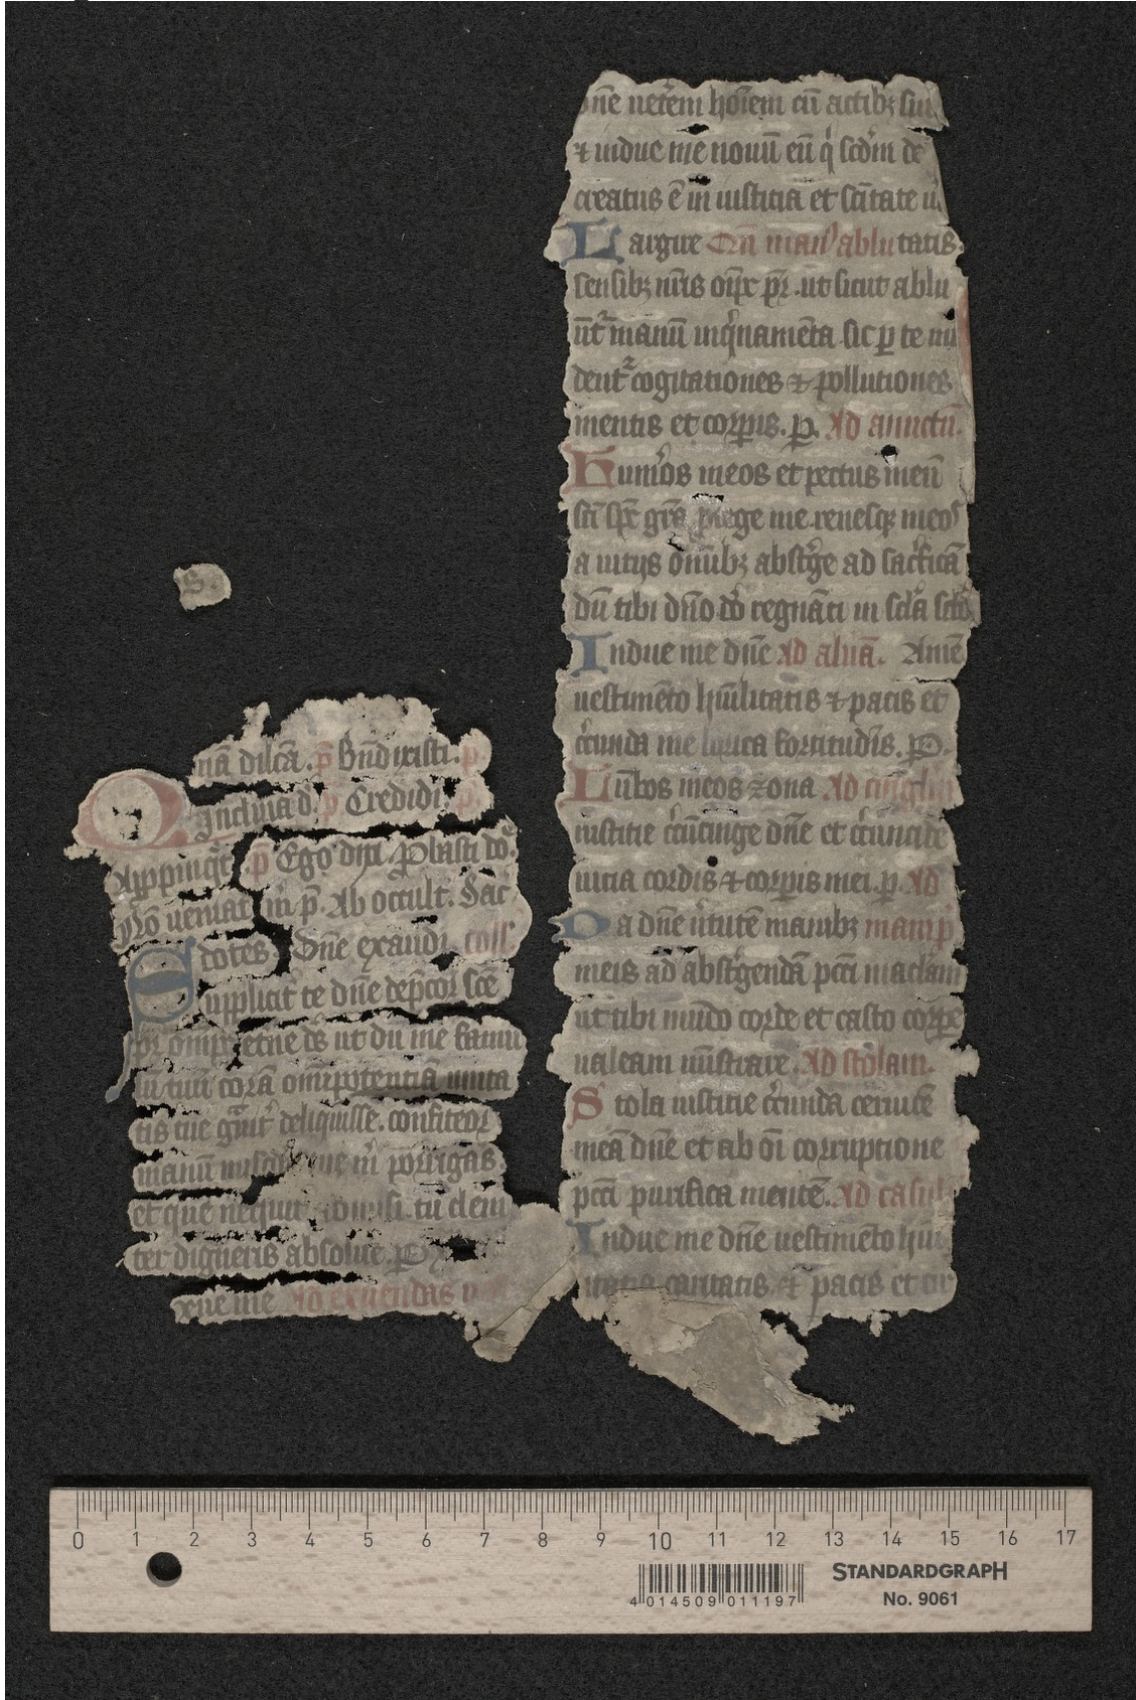 s
nā dilc̄a. p̄ Bn̄dixisti. p̄
Q Inclina d. p̄ Credidi. p̄
Appp̄inq̄t p̄ Ego dixi. Plasti do.
Pro ueniat in p̄. Ab occult. Sac
dotes. Dn̄e exaudi. coll
Suppliciť te dn̄e dep̄cor sc̄e
pr̄ omp̄s et̄ne ds̄ ut dū me famu
lū tuū corā omīpotenciā inuita
tis tue g̃uiť deliquisse. confiteor
manū m̄ porrigas
et que nequit tu clem
ter digneris absolue. P
xue me Ad exuendas
dn̄e uet̄em hoīem cū actibꝫ sui
⁊ indue me nouū eū q̇ scd̄m de
creatus ē in iusticia et sc̄itate u
Largire Cū man̄ ablu tatis.
sensibꝫ nr̄is om̄ps pr̄. ut sicut ablu
ūt̄ manū inq̇namēta sic ꝑ te mū
dent᷑ cogitationes ⁊ pollutiones
mentis et corꝑis. p. Ad amictū.
Hum̄os meos et pectus meū
sc̄i sp̄c gr̄a p̄tege me renesqꝫ meos
a uitijs om̄ibꝫ abst̄ge ad sac̄ficā
dū tibi dn̄o dō regnāti in sc̄la sc̄lō
Indue me dn̄e Ad albā. Amē
uestimēto hūilitatis ⁊ pacis et
c̄cunda me lorica fortitudīs. P.
Lūbos meos zona Ad cingulū
iusticie c̄cūcinge dn̄e et c̄cūcide
uitia cordis ⁊ corꝑis mei. p. Ad
Da dn̄e ūtutē manibꝫ manip̄
meis ad abst̄gendā pcc̄i maclām
ut tibi mūdo corde et casto corꝑe
ualeam mīstrare. Ad stolam.
Stola iusticie c̄cunda ceruicē
meā dn̄e et ab oī corruptione
pcc̄i purifica mentē. Ad casul
Indue me dn̄e uestimēto hūi
litatis caritatis ⁊ pacis et cir
0 1 2 3 4 5 6 7 8 9 10 11 12 13 14 15 16 17
STANDARDGRAPH
No. 9061
4 014509 011197